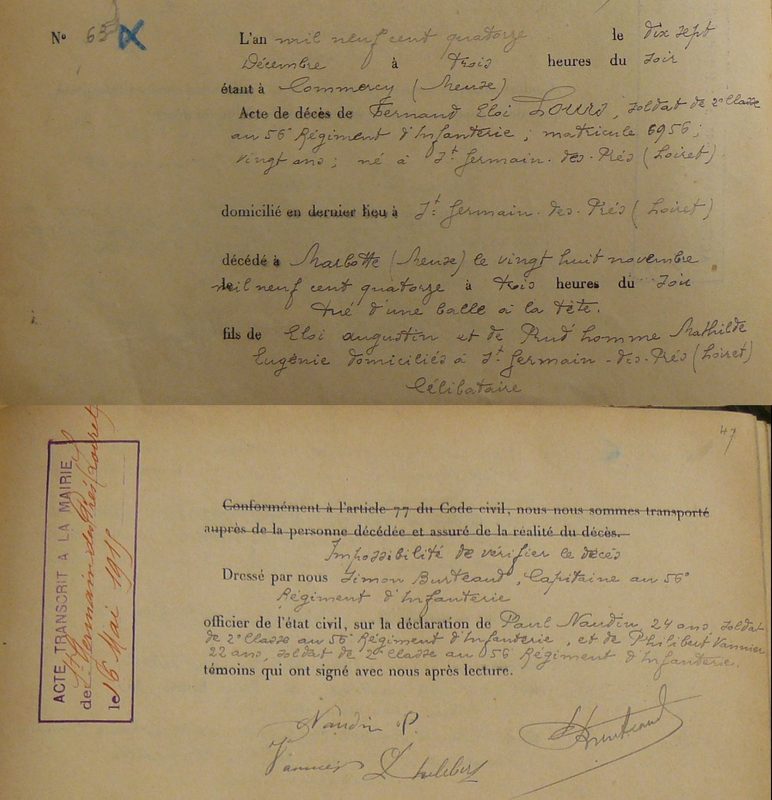 N° 63
L'an mil neuf cent quatorze le dix sept
Décembre à trois heures du soir
étant à Commercy (Meuse)
Acte de décès de Fernand Eloi Lours, soldat de 2e Classe
au 56e Régiment d'Infanterie ; matricule 6956 ;
vingt ans ; né à St Germain-des-Prés (Loiret)
domicilié en dernier lieu à St Germain-des-Prés (Loiret)
décédé à Marbotte (Meuse) le vingt huit novembre
le mil neuf cent quatorze à trois heures du soir
tué d'une balle à la tête.
fils de Eloi Augustin et de Prud'homme Mathilde
Eugénie domiciliés à St Germain-des-Prés (Loiret)
Célibataire
47
ACTE TRANSCRIT A LA MAIRIE
de St Germain des Prés (Loiret)
le 16 Mai 1915
Conformément à l'article 77 du Code civil, nous nous sommes transporté
auprès de la personne décédée et assuré de la réalité du décès.
Impossibilité de vérifier le décès
Dressé par nous Simon Burteaud, Capitaine au 56e
Régiment d'Infanterie
officier de l'état civil, sur la déclaration de Paul Naudin, 24 ans, soldat
de 2e Classe au 56e Régiment d'Infanterie, et de Philibert Vannier
22 ans, soldat de 2e Classe au 56e Régiment d'Infanterie.
témoins qui ont signé avec nous après lecture.
Naudin P.
Vannier Philibert